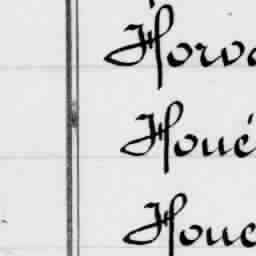 Horva
Houé
Houe